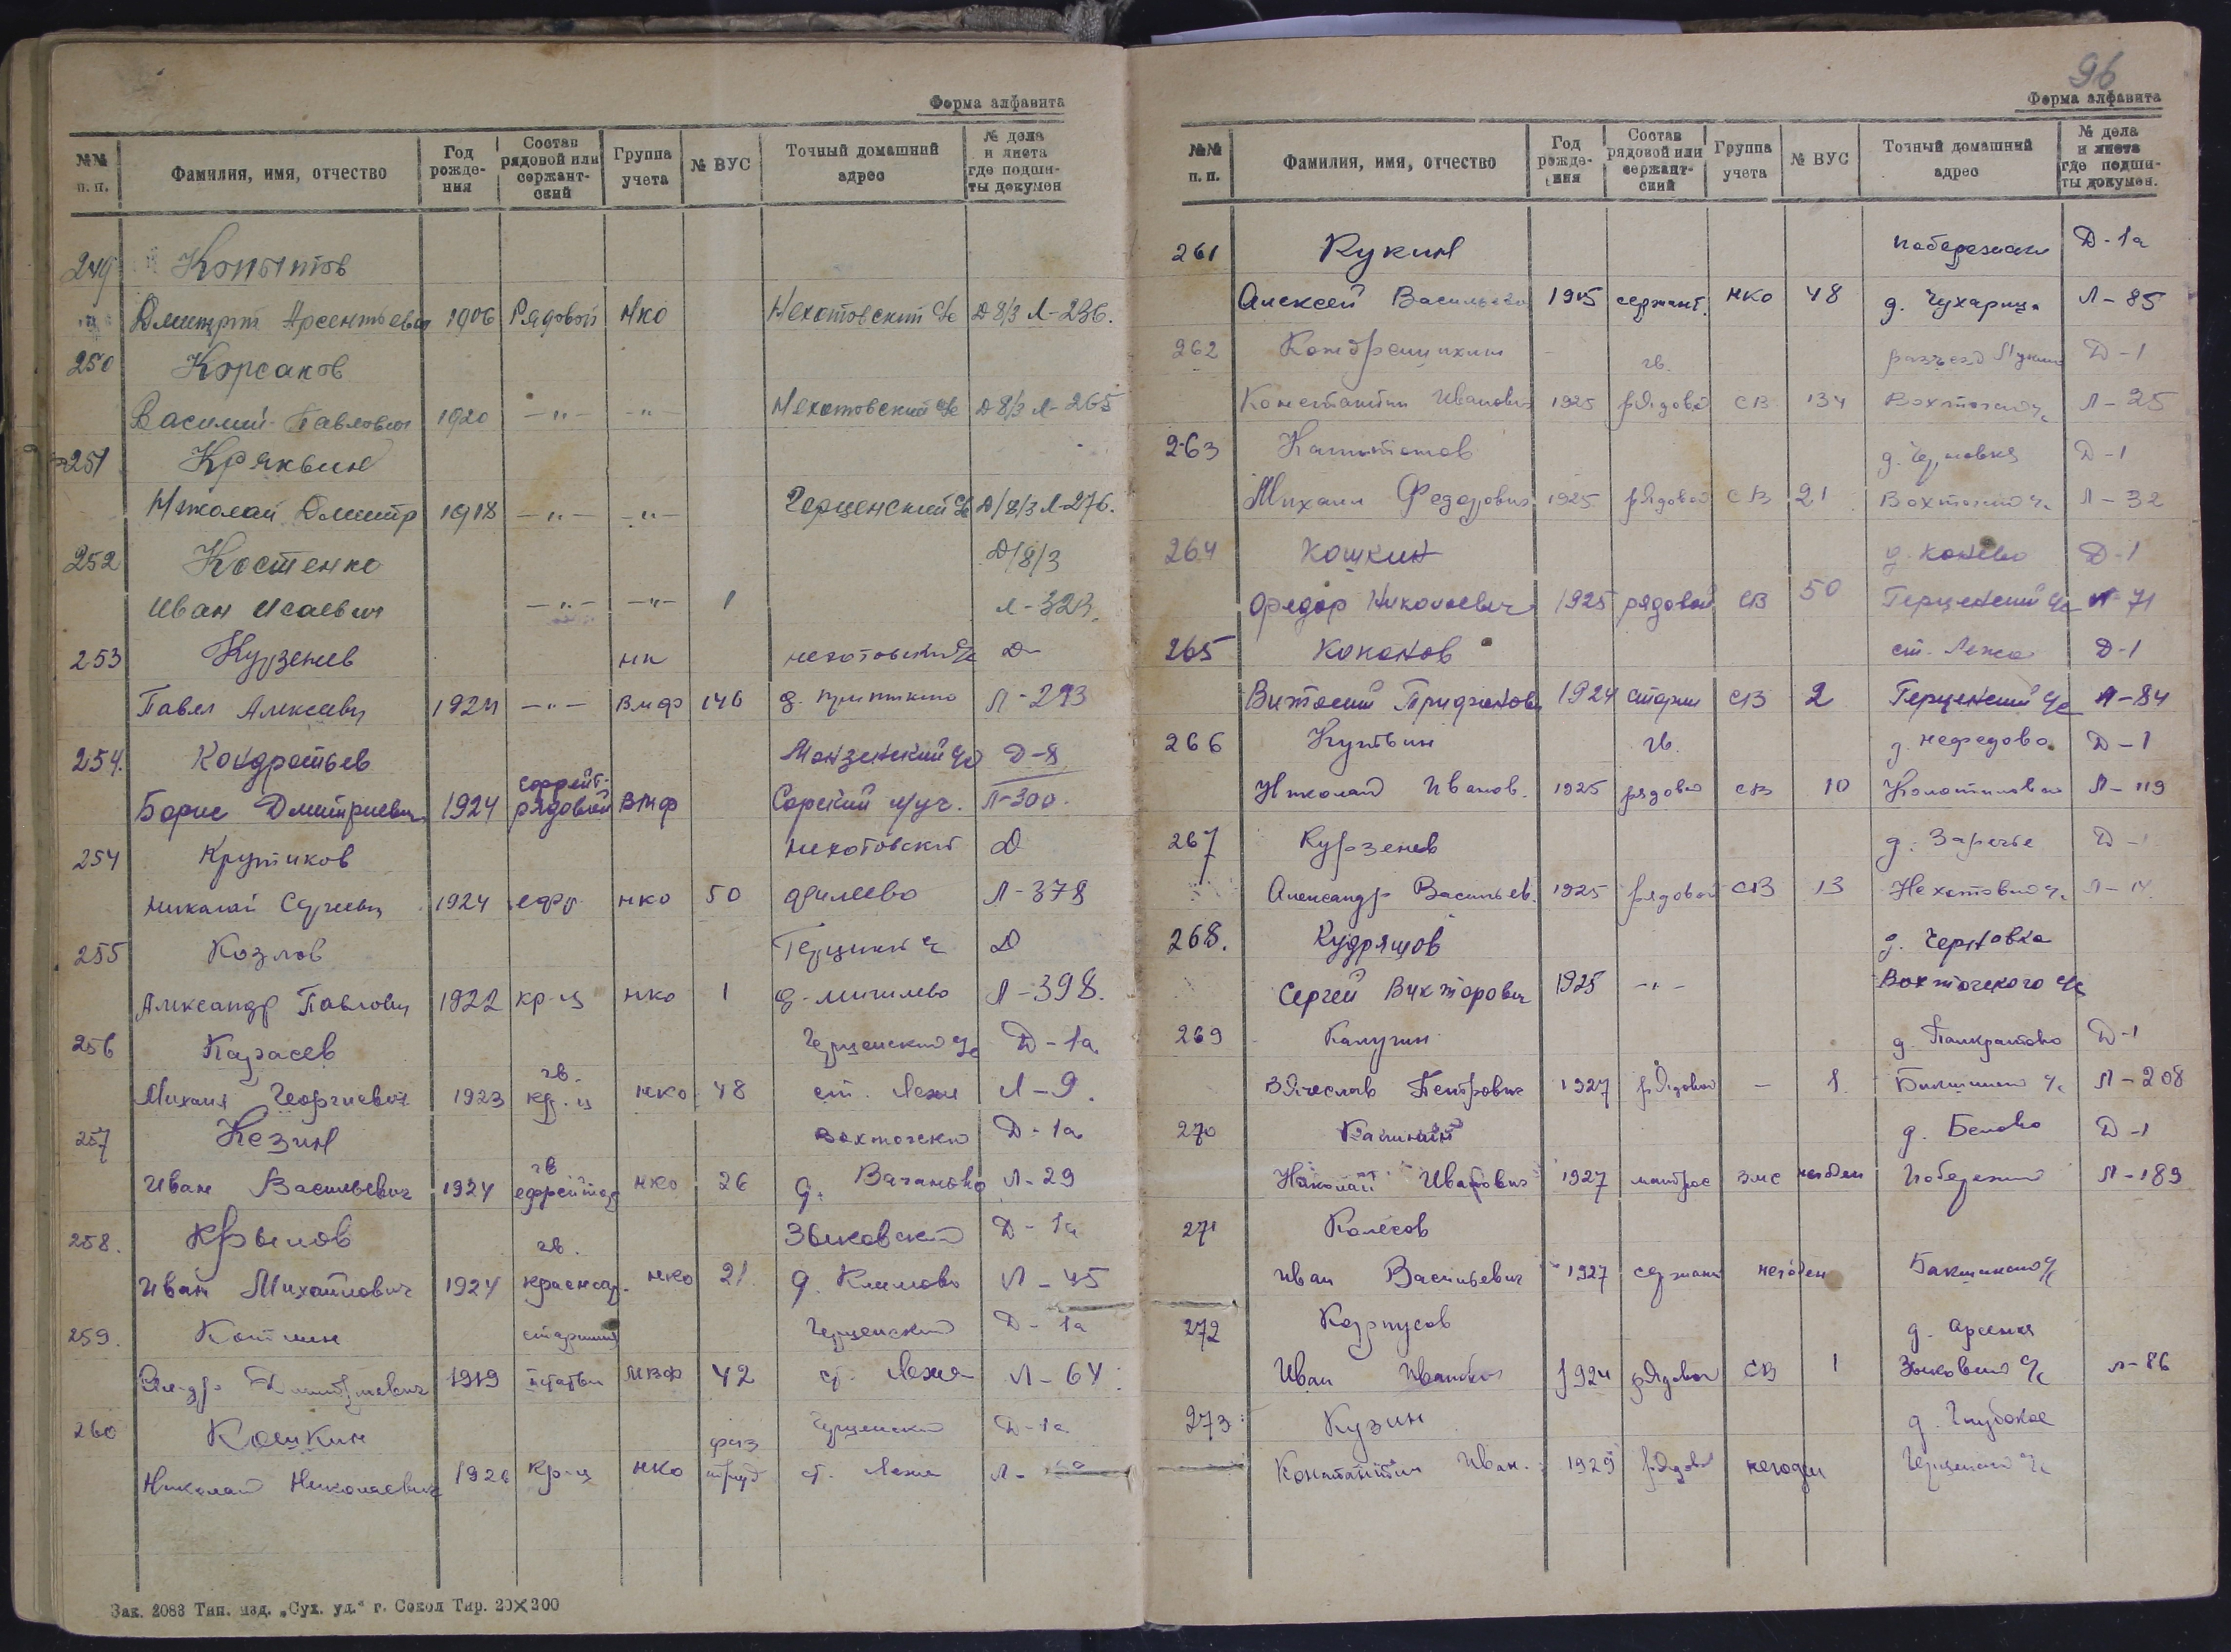 Форма алфавита
№№ п. п. Фамилия, имя, отчество Год рождения Состав рядовой или сержантский Группа учета № ВУС Точный домашний адрес № дела и листа где подшиты докумен
249 Копытов
Дмитрий Арсентьевич 1906 Рядовой НКО Нехотовский с/с Д 8/3 Л-236.
250 Корсаков
Василий Павлович 1920 —"— —"— Нехотовский с/с Д 8/3 Л-265
251 Кряквин
Николай Дмитр 1918 —"— —"— Герценский с/с Д/8/3 Л-276.
252 Костенко Д/8/3
Иван Исаевич —"— —"— 1 Л-323.
253 Курзенев нк нехотовский с/с Д-
Павел Алексеевич 1924 —"— Вмф 146 д. Л-293
254. Кондратьев Монзенский с/с Д-8
Борис Дмитриевич 1924 ефрейт- рядовой ВМФ Л-300.
254 Крутиков нехотовский Д
Николай Сергеевич 1924 ефр НКО 50 Филево Л-378
255 Козлов Д
Александр Павлович 1922 кр-ц нко 1 д. Л-398.
256 Карасев Герценский с/с Д-1а
Михаил Георгиевич 1923 гв. кр-ц нко 48 ст. Лежа Л-9.
257 Кезин Вохтожский Д-1а
Иван Васильевич 1924 гв ефрейтор НКО 26 д. Ваганово Л-29
258. Крылов Зыковский Д-1а
Иван Михайлович 1924 гв. красноар. нко 21. д. Климово Л-45
259. Котлин старшина Герценский Д-1а
Ал-др Дмитриевич 1919 статьи МВФ 42 ст. Лежа Л-64
260 Кошкин Герценский Д-1а
Николай Николаевич 1926 кр-ц НКО физ труд ст. Лежа Л-
Зак. 2083 Тип. изд. „Сух. уд.“ г. Сокол Тир. 20×200
96
Форма алфавита
№№ п. п. Фамилия, имя, отчество Год рождения Состав рядовой или сержантский Группа учета № ВУС Точный домашний адрес № дела и листа где подшиты докумен.
261 Кукин Д-1а
Алексей Васильевич 1905 сержант. НКО 48 д. Чухарица Л-85
262 Кондрашихин гв. разъезд Д-1
Константин Иванович 1925 рядовой СВ 134 Вохтожский с/с Л-25
263 Капитонов д. Черновка Д-1
Михаил Федорович 1925 рядовой СВ 21 Вохтожский с/с Л-32
264 Кошкин д. Конево Д-1
Федор Николаевич 1925 рядовой СВ 50 Герценский с/с Л-71
265 Коконов ст. Лежа Д-1
Виталий 1924 старш СВ 2 Герценский с/с Л-84
266 Кутьин гв. д. Нефедово Д-1
Николай Иванов. 1925 рядовой СВ 10 Л-119
267 Курзенев д. Заречье Д-1
Александр Васильев. 1925 рядовой СВ 13 Нехотовский с/с Л-14
268. Кудряшов д. Черновка
Сергей Викторович 1925 —"— Вохтожского с/с
269 Калугин д. Панкратово Д-1
Вячеслав Петрович 1927 рядовой — 1. с/с Л-208
270 Калинин д. Белово Д-1
Николай Иванович 1927 матрос ВМС негоден Л-189
271 Колесов
Иван Васильевич 1927 сержант негоден с/с
272 Корпусов д.
Иван Иванович 1924 рядовой СВ 1 Зыковский с/с Л-86
273 Кузин д. Глубокое
Константин Иван. 1929 рядовой негоден Герценский с/с